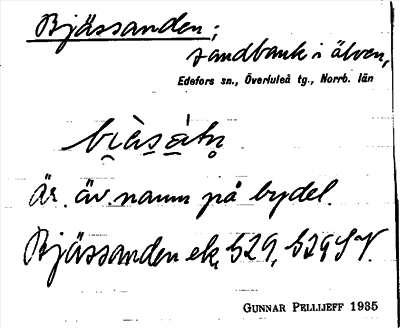 Bjässanden;
sandbank i älven,
Edefors sn., Överluleå tg., Norrb. län
är äv. namn på bydel.
Bjässanden ek. 529, 529 SV.
GUNNAR PELLIJEFF 1935